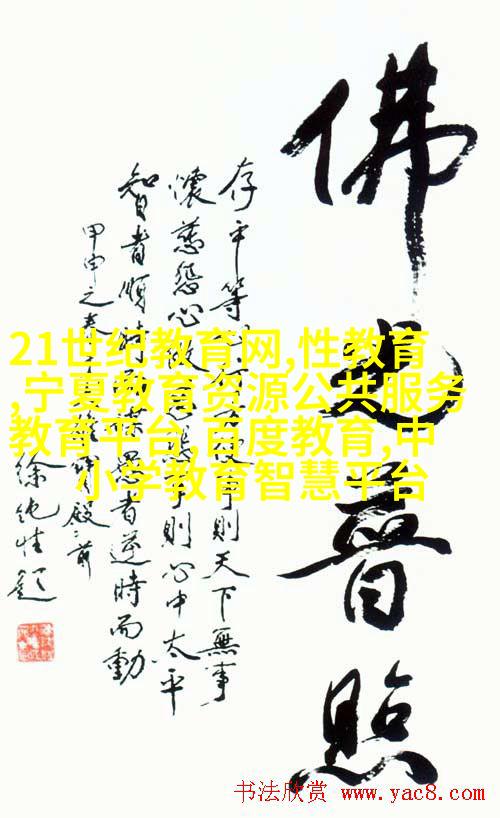 佛光普照
存平等心行方便事則天下無事
懷慈悲心做慈悲事則心中太平
智者順時而謀愚者逆時而動
甲申之春
徐純性題
21世纪教育网,性教育
,宁夏教育资源公共服务
教育平台,百度教育,中
小学教育智慧平台
书法欣赏 www.yac8.com